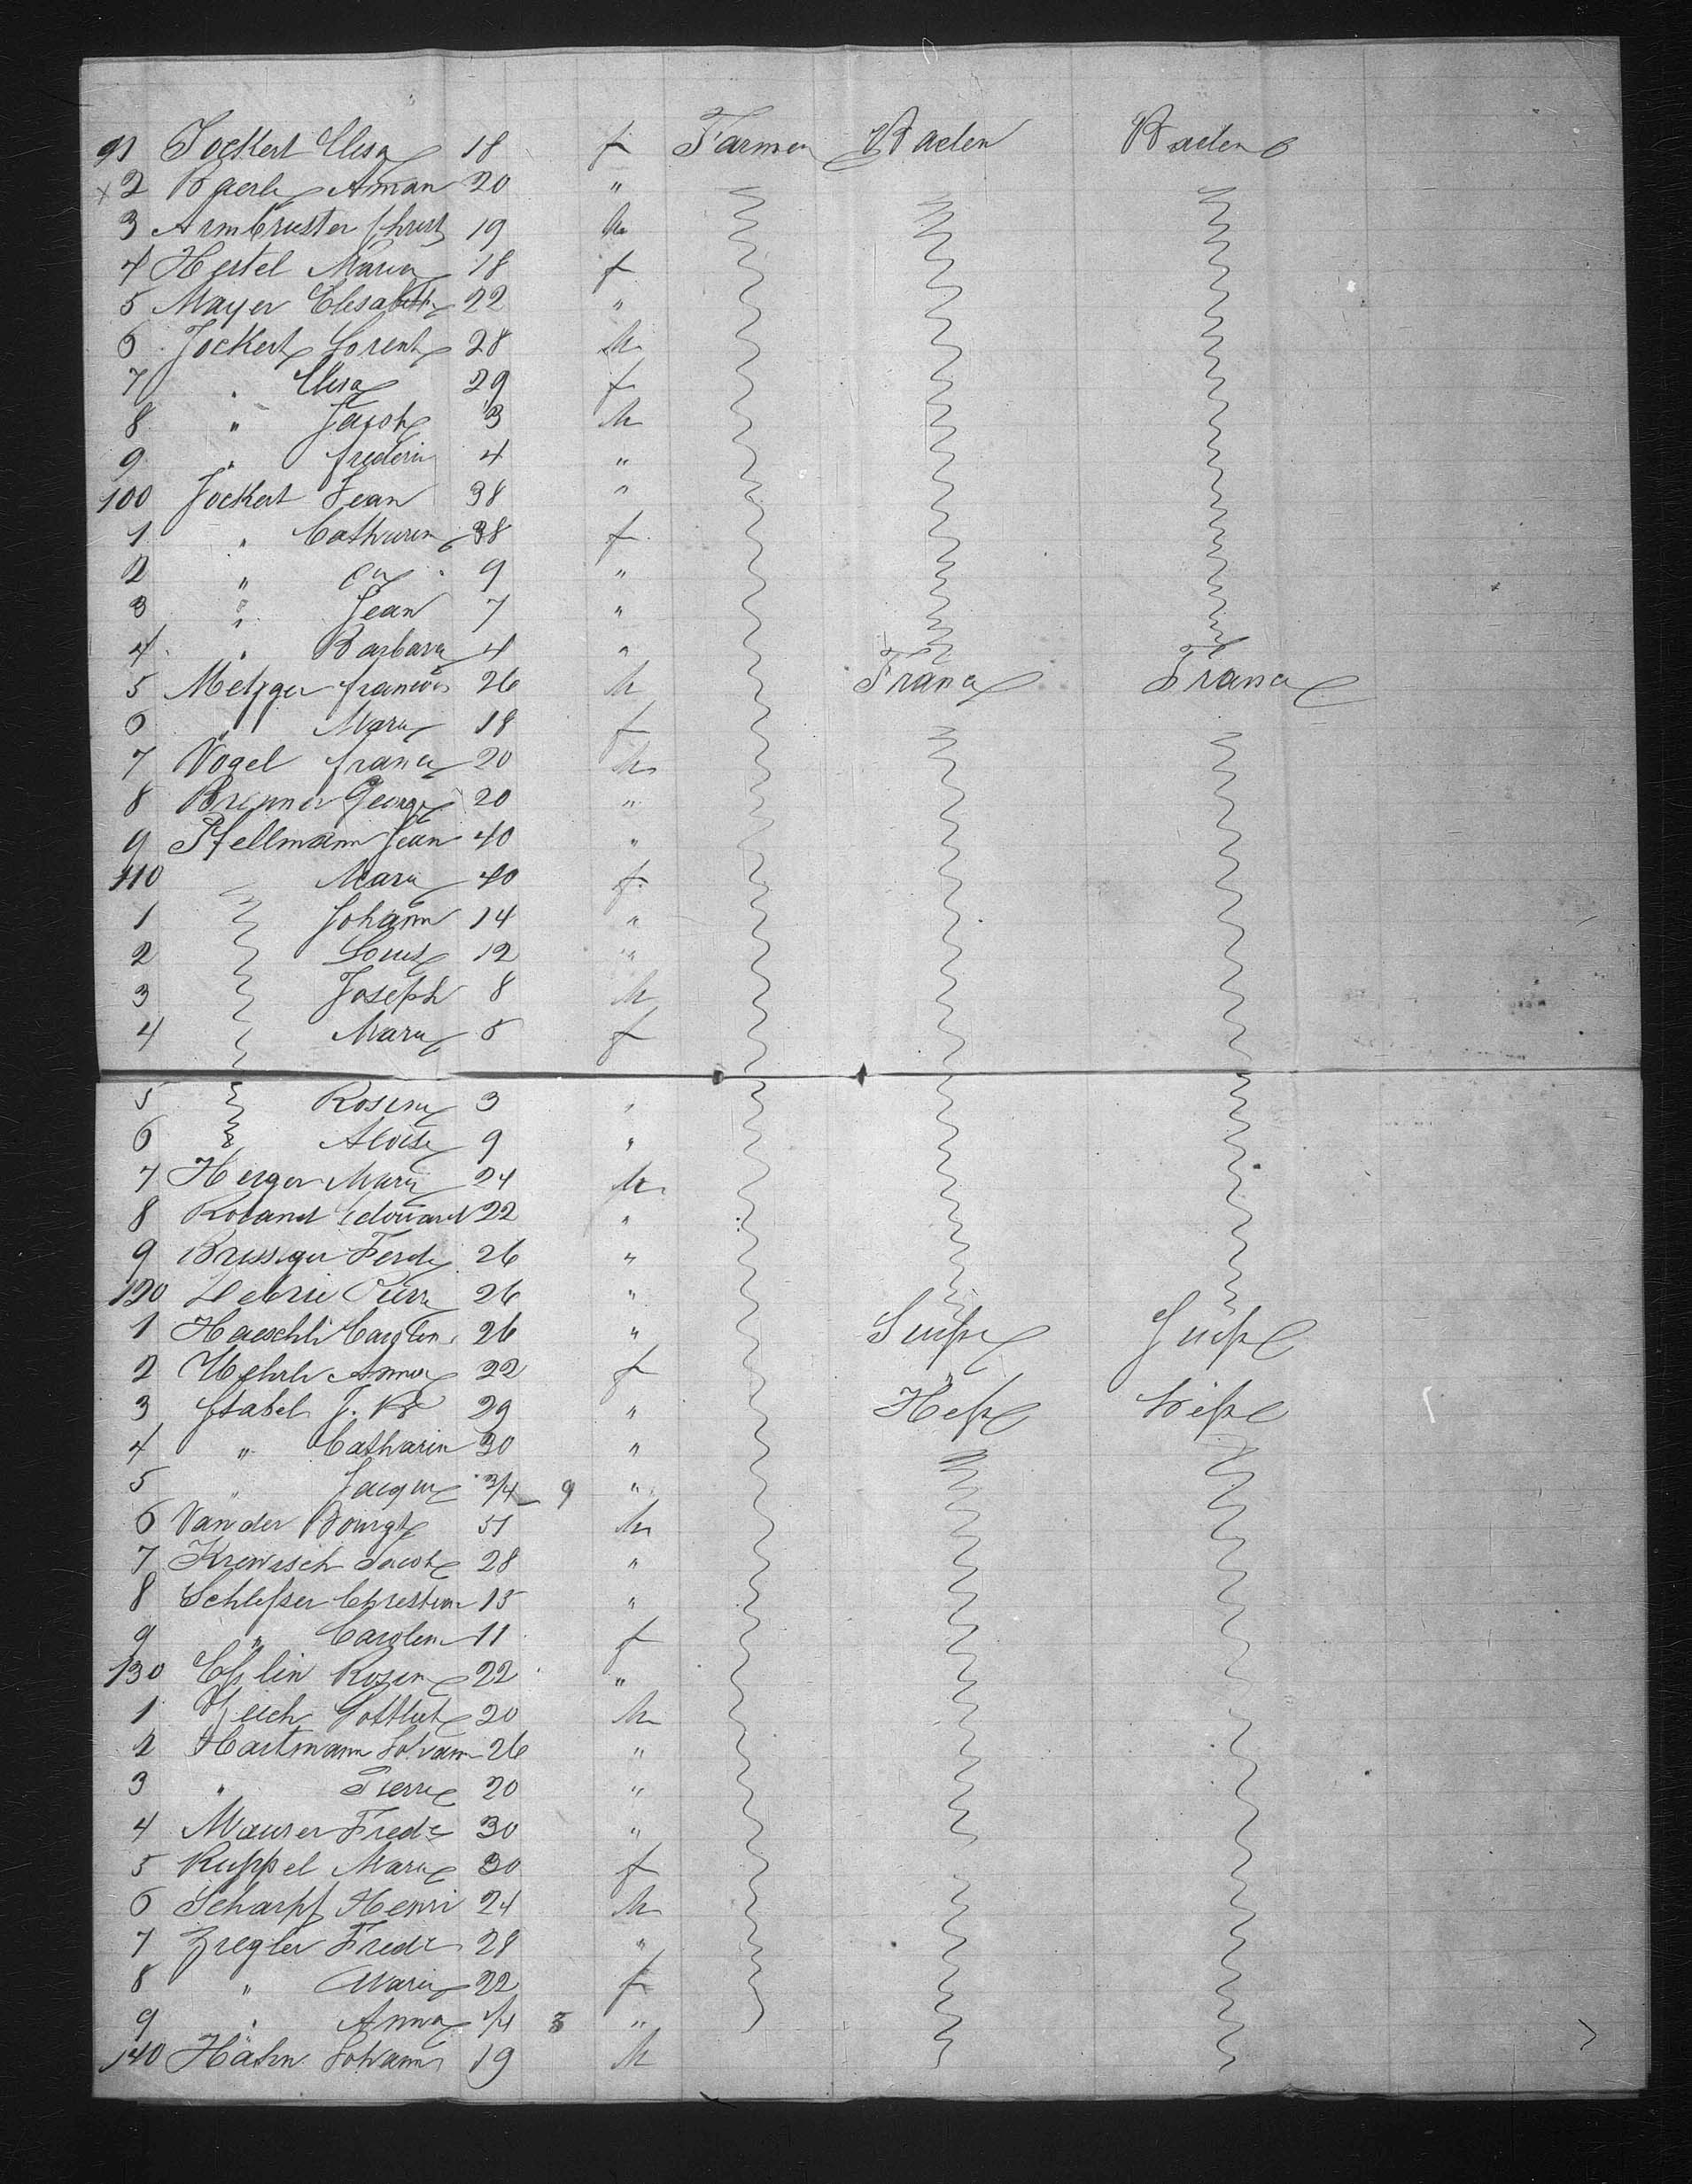 91 Jockert Elisa 18 f Farmer Baden Baden
x 2 Baerle Aman 20 "
3 Armbruster Christ 19 M
4 Hertel Maria 18 f
5 Mayer Elisabeth 22 "
6 Jockert Lorent 28 M
7 " Elisa 29 f
8 " Jacob 3 M
9 " frederic 4 "
100 Jockert Jean 38 "
1 " Catharin 38 f
2 " 9 "
3 " Jean 7 "
4 " Barbara 4 "
5 Metzger francois 26 M France France
6 " Marie 18 f
7 Vogel franc 20 M
8 Brenner George 20 "
9 Stellmann Jean 40 "
110 Marie 40 f
1 Johann 14 "
2 Louis 12 "
3 Joseph 8 M
4 Marie 5 f
5 Rosina 3 "
6 Aloise 9 "
7 Herger Marie 24 M
8 Roland Edouard 22 "
9 Brissger Ferd 26 "
120 Debrie Pierre 26 "
1 Haeschli Carolin 26 " Suisse Suisse
2 Wehrle Anna 22 f
3 Stabel J. 29 " Hesse hesse
4 " Catharin 30 "
5 " Jacque 3/4 9 "
6 Vander Bourgt 51 M
7 Krewisch Jacob 28 "
8 Schlesser Christian 15 "
9 " Carolin 11 f
130 Esslin Rosin 22 "
1 Gottlieb 20 M
2 Hartmann Johann 26 "
3 " Pierre 20 "
4 Maurer Fredc 30 "
5 Ruppel Marie 30 f
6 Scharpf Henri 24 M
7 Ziegler Fredc 28 "
8 " Maria 22 f
9 " Anna 1/4 3 "
140 Hahn Johann 19 M